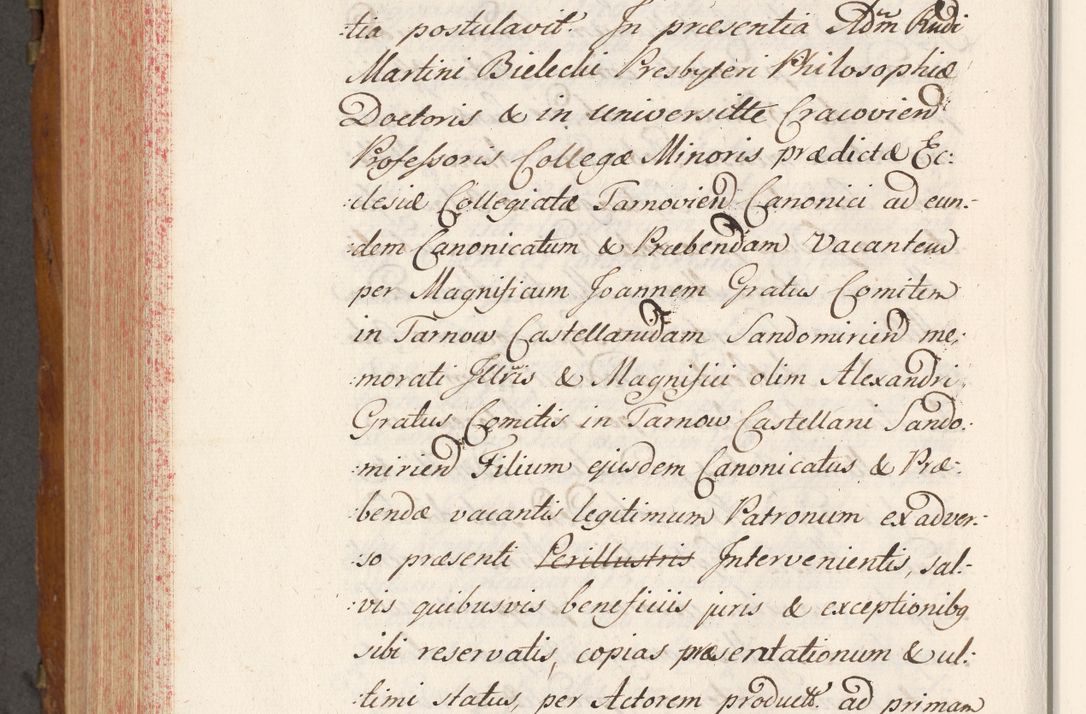 :tia postulavit. In præsentia Adm̃ Rñdi
Martini Bielecki Presbyteri Philosophiæ
Doctoris & in Universitte Cracoviend
Professoris Collegæ Minoris prædictæ Ec:
:clesiæ Collegiatæ Tarnoviend Canonici ad eun:
:dem Canonicatum & Præbendam Vacantem
per Magnificum Joannem Gratus Comitem
in Tarnow Castellanidam Sandomiriend me:
:morati Jllr̃is & Magnifici olim Alexandri
Gratus Comitis in Tarnow Castellani Sando:
:miriend Filium ejusdem Canonicatus & Præ:
:bendæ vacantis legitimum Patronum ex adver:
:so præsenti Perillustris Intervenientis, sal:
:vis quibusvis beneficiis juris & exceptionibq
sibi reservatis, copias præsentationum & ul:
:timi status, per Actorem product. ad primam